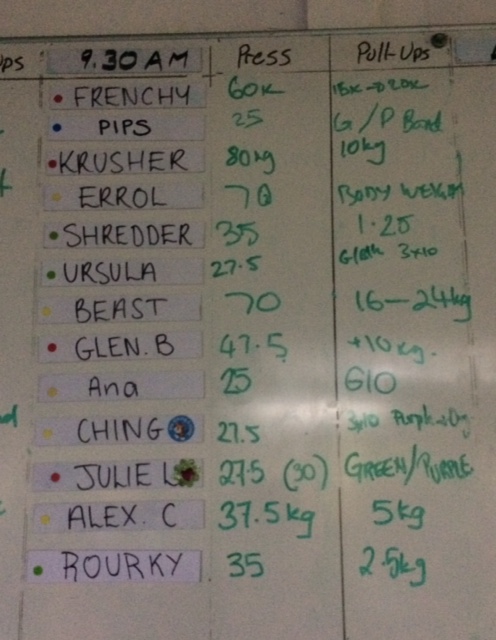 ps 9.30 AM Press Pull-Ups
FRENCHY 60K 20K
PIPS 25 G/P Band
KRUSHER 80kg 10kg
ERROL 70 BODY WEIGHT
SHREDDER 35 1.25
URSULA 27.5 3x10
BEAST 70 16-24kg
GLEN.B 47.5 +10kg.
Ana 25 G10
CHING 27.5 3x10 Purple
JULIE L 27.5 (30) GREEN/PURPLE
ALEX. C 37.5kg 5kg
ROURKY 35 2.5kg